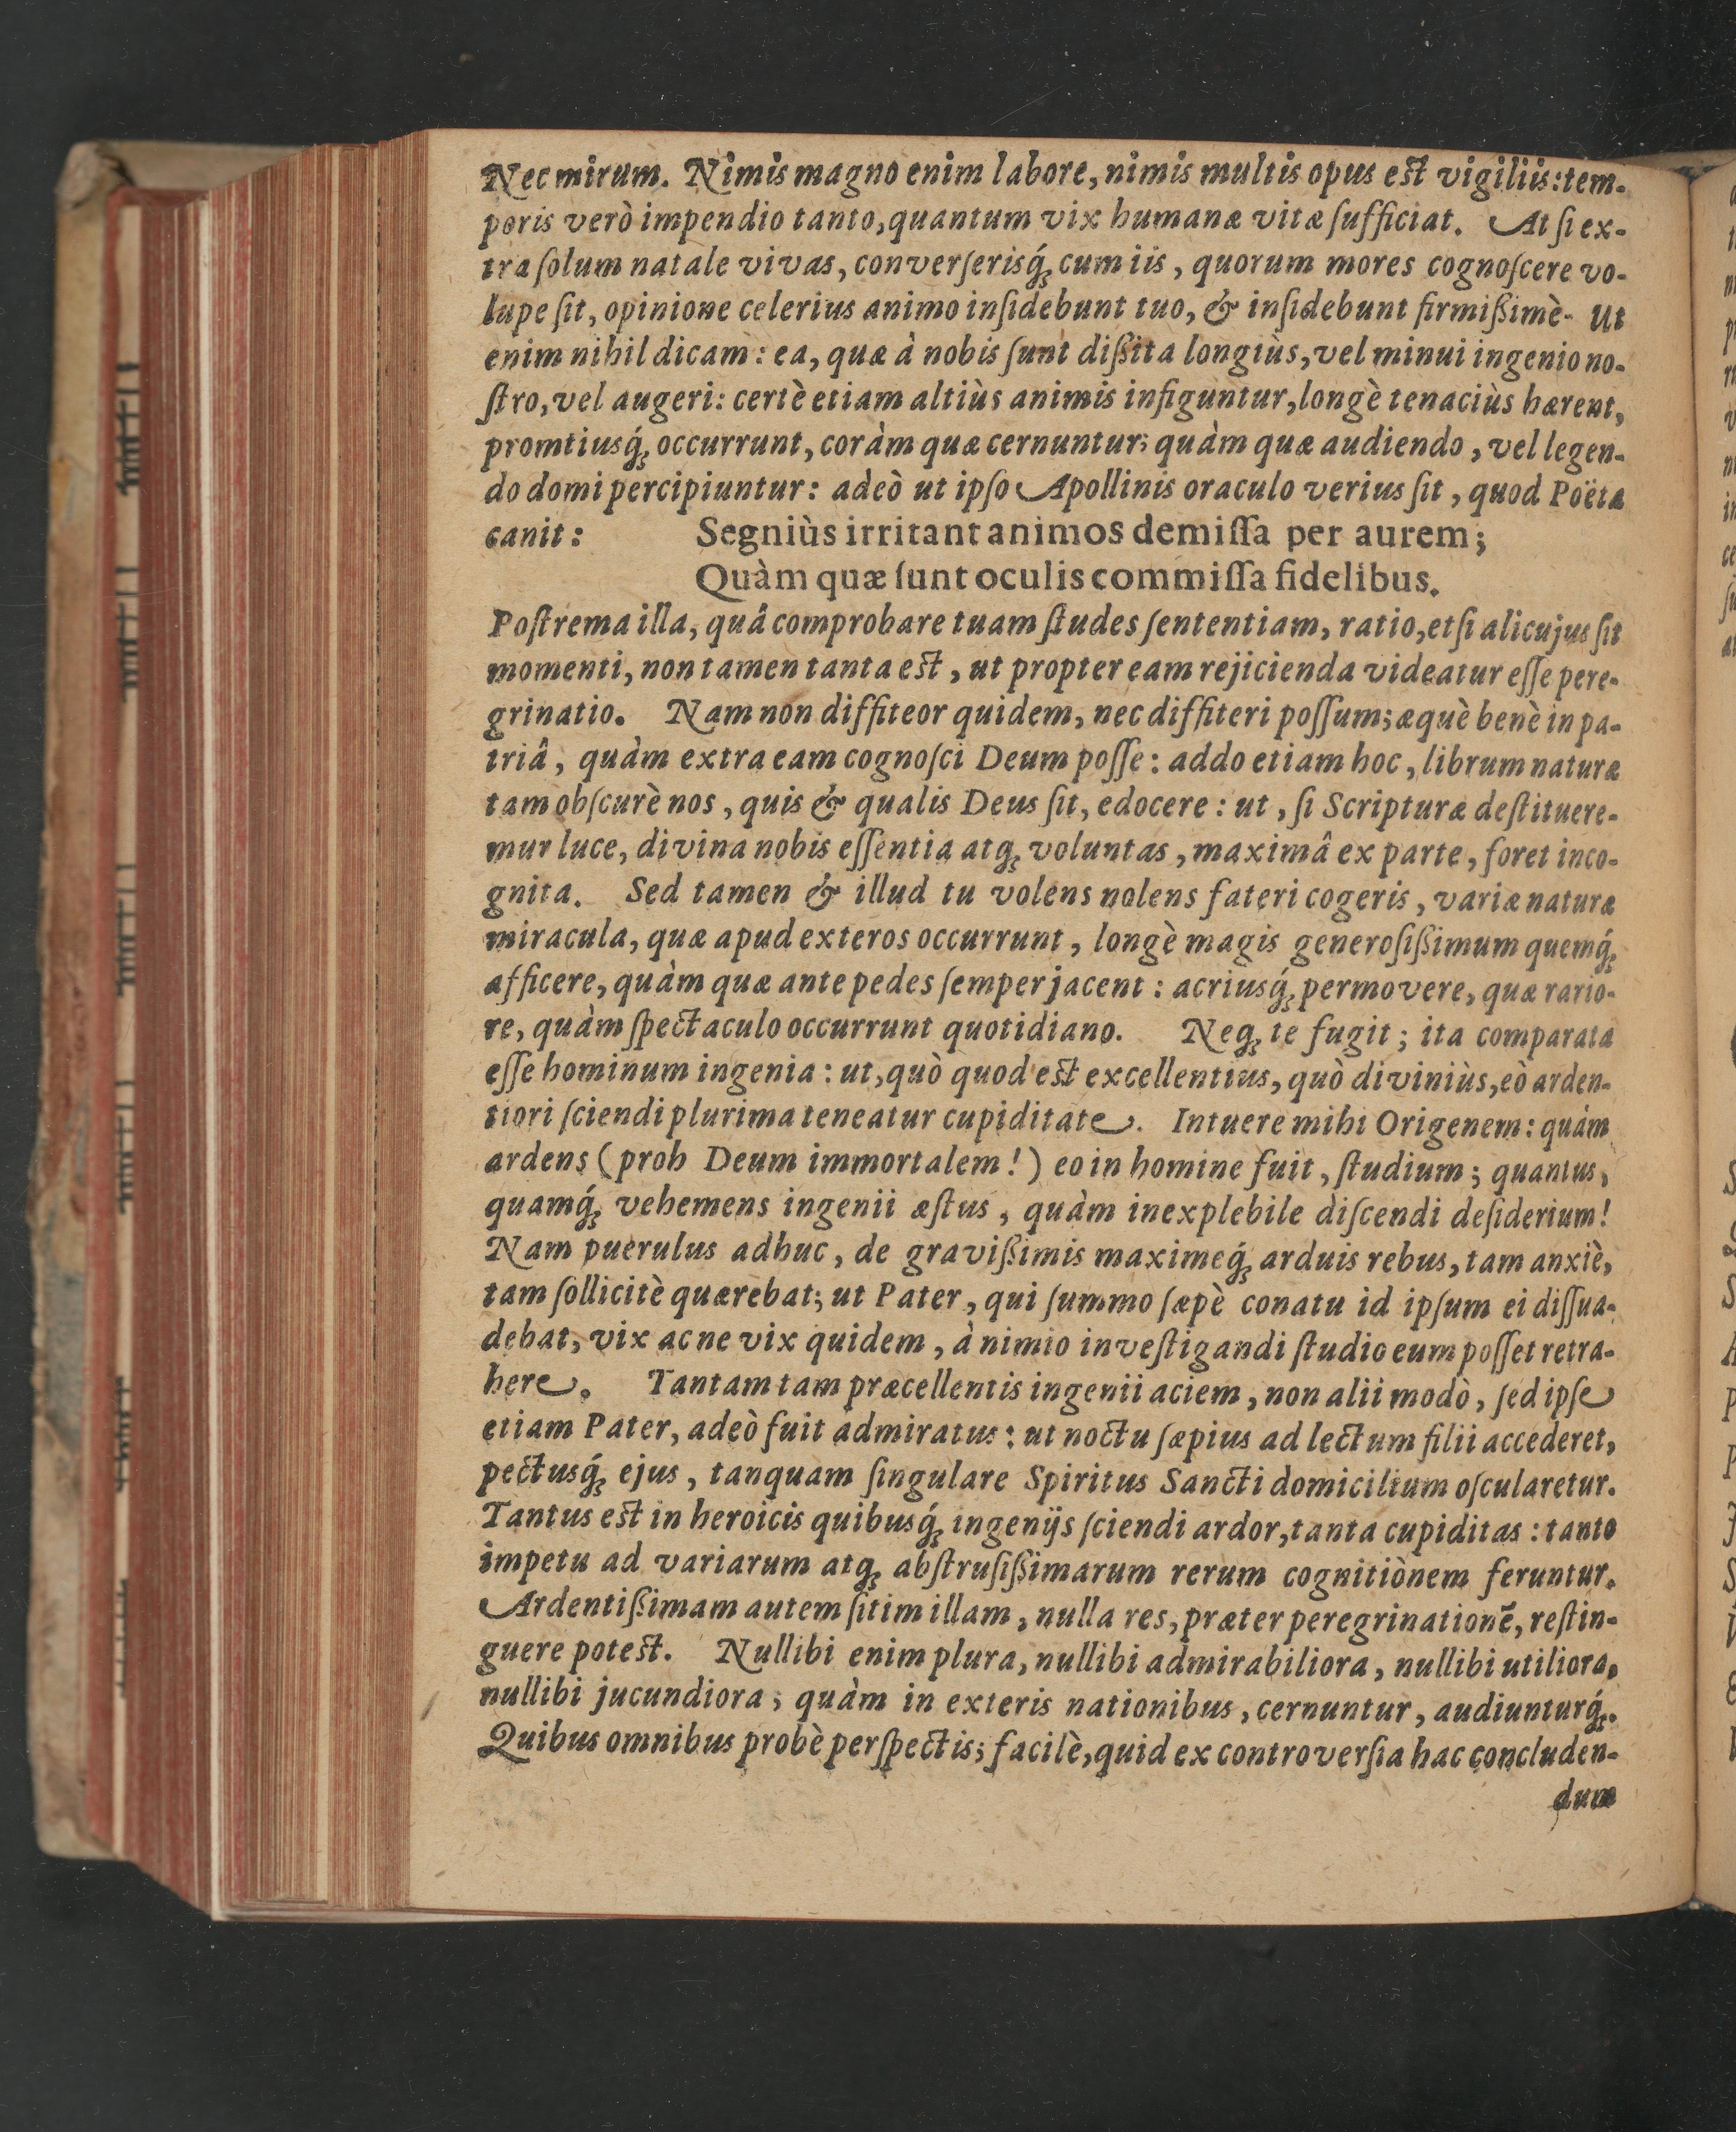 Nec mirum. Nimis magno enim labore, nimis multis opus eſt vigiliis: tem-
poris verò impendio tanto, quantum vix humanæ vitæ ſufficiat. At ſi ex-
tra ſolum natale vivas, converſerisq́; cum iis, quorum mores cognoſcere vo-
lupe ſit, opinione celerius animo inſidebunt tuo, & inſidebunt firmißimè. Ut
enim nihil dicam: ea, quæ à nobis ſunt dißita longiùs, vel minui ingenio no-
ſtro, vel augeri: certè etiam altiùs animis infiguntur, longè tenaciùs hærent,
promtiusq́; occurrunt, coràm quæ cernuntur; quàm quæ audiendo, vel legen-
do domi percipiuntur: adeò ut ipſo Apollinis oraculo verius ſit, quod Poëta
canit: Segniùs irritant animos demiſſa per aurem;
Quàm quæ ſunt oculis commiſſa fidelibus.
Poſtrema illa, quâ comprobare tuam ſtudes ſententiam, ratio, etſi alicujus ſit
momenti, non tamen tanta eſt, ut propter eam rejicienda videatur eſſe pere-
grinatio. Nam non diffiteor quidem, nec diffiteri poſſum; æquè benè in pa-
triâ, quàm extra eam cognoſci Deum poſſe: addo etiam hoc, librum naturæ
tam obſcurè nos, quis & qualis Deus ſit, edocere: ut, ſi Scripturæ deſtituere-
mur luce, divina nobis eſſentia atq; voluntas, maximâ ex parte, foret inco-
gnita. Sed tamen & illud tu volens nolens fateri cogeris, variæ naturæ
miracula, quæ apud exteros occurrunt, longè magis generoſißimum quemq́;
afficere, quàm quæ ante pedes ſemper jacent: acriusq́; permovere, quæ rario-
re, quàm ſpectaculo occurrunt quotidiano. Neq; te fugit; ita comparata
eſſe hominum ingenia: ut, quò quod eſt excellentius, quò diviniùs, eò arden-
tiori ſciendi plurima teneatur cupiditate. Intuere mihi Origenem: quàm
ardens (proh Deum immortalem!) eo in homine fuit, ſtudium; quantus,
quamq́; vehemens ingenii æſtus, quàm inexplebile diſcendi deſiderium!
Nam puerulus adhuc, de gravißimis maximeq́; arduis rebus, tam anxiè,
tam ſollicitè quærebat; ut Pater, qui ſummo ſæpè conatu id ipſum ei diſſua-
debat, vix ac ne vix quidem, à nimio inveſtigandi ſtudio eum poſſet retra-
here. Tantam tam præcellentis ingenii aciem, non alii modò, ſed ipſe
etiam Pater, adeò fuit admiratus: ut noctu ſæpius ad lectum filii accederet,
pectusq́; ejus, tanquam ſingulare Spiritus Sancti domicilium oſcularetur.
Tantus eſt in heroicis quibusq́; ingenijs ſciendi ardor, tanta cupiditas: tanto
impetu ad variarum atq; abſtruſißimarum rerum cognitiònem feruntur.
Ardentißimam autem ſitim illam, nulla res, præter peregrinationē, reſtin-
guere poteſt. Nullibi enim plura, nullibi admirabiliora, nullibi utiliora,
nullibi jucundiora; quàm in exteris nationibus, cernuntur, audiunturq́;.
Quibus omnibus probè perſpectis; facilè, quid ex controverſia hac concluden-
dum